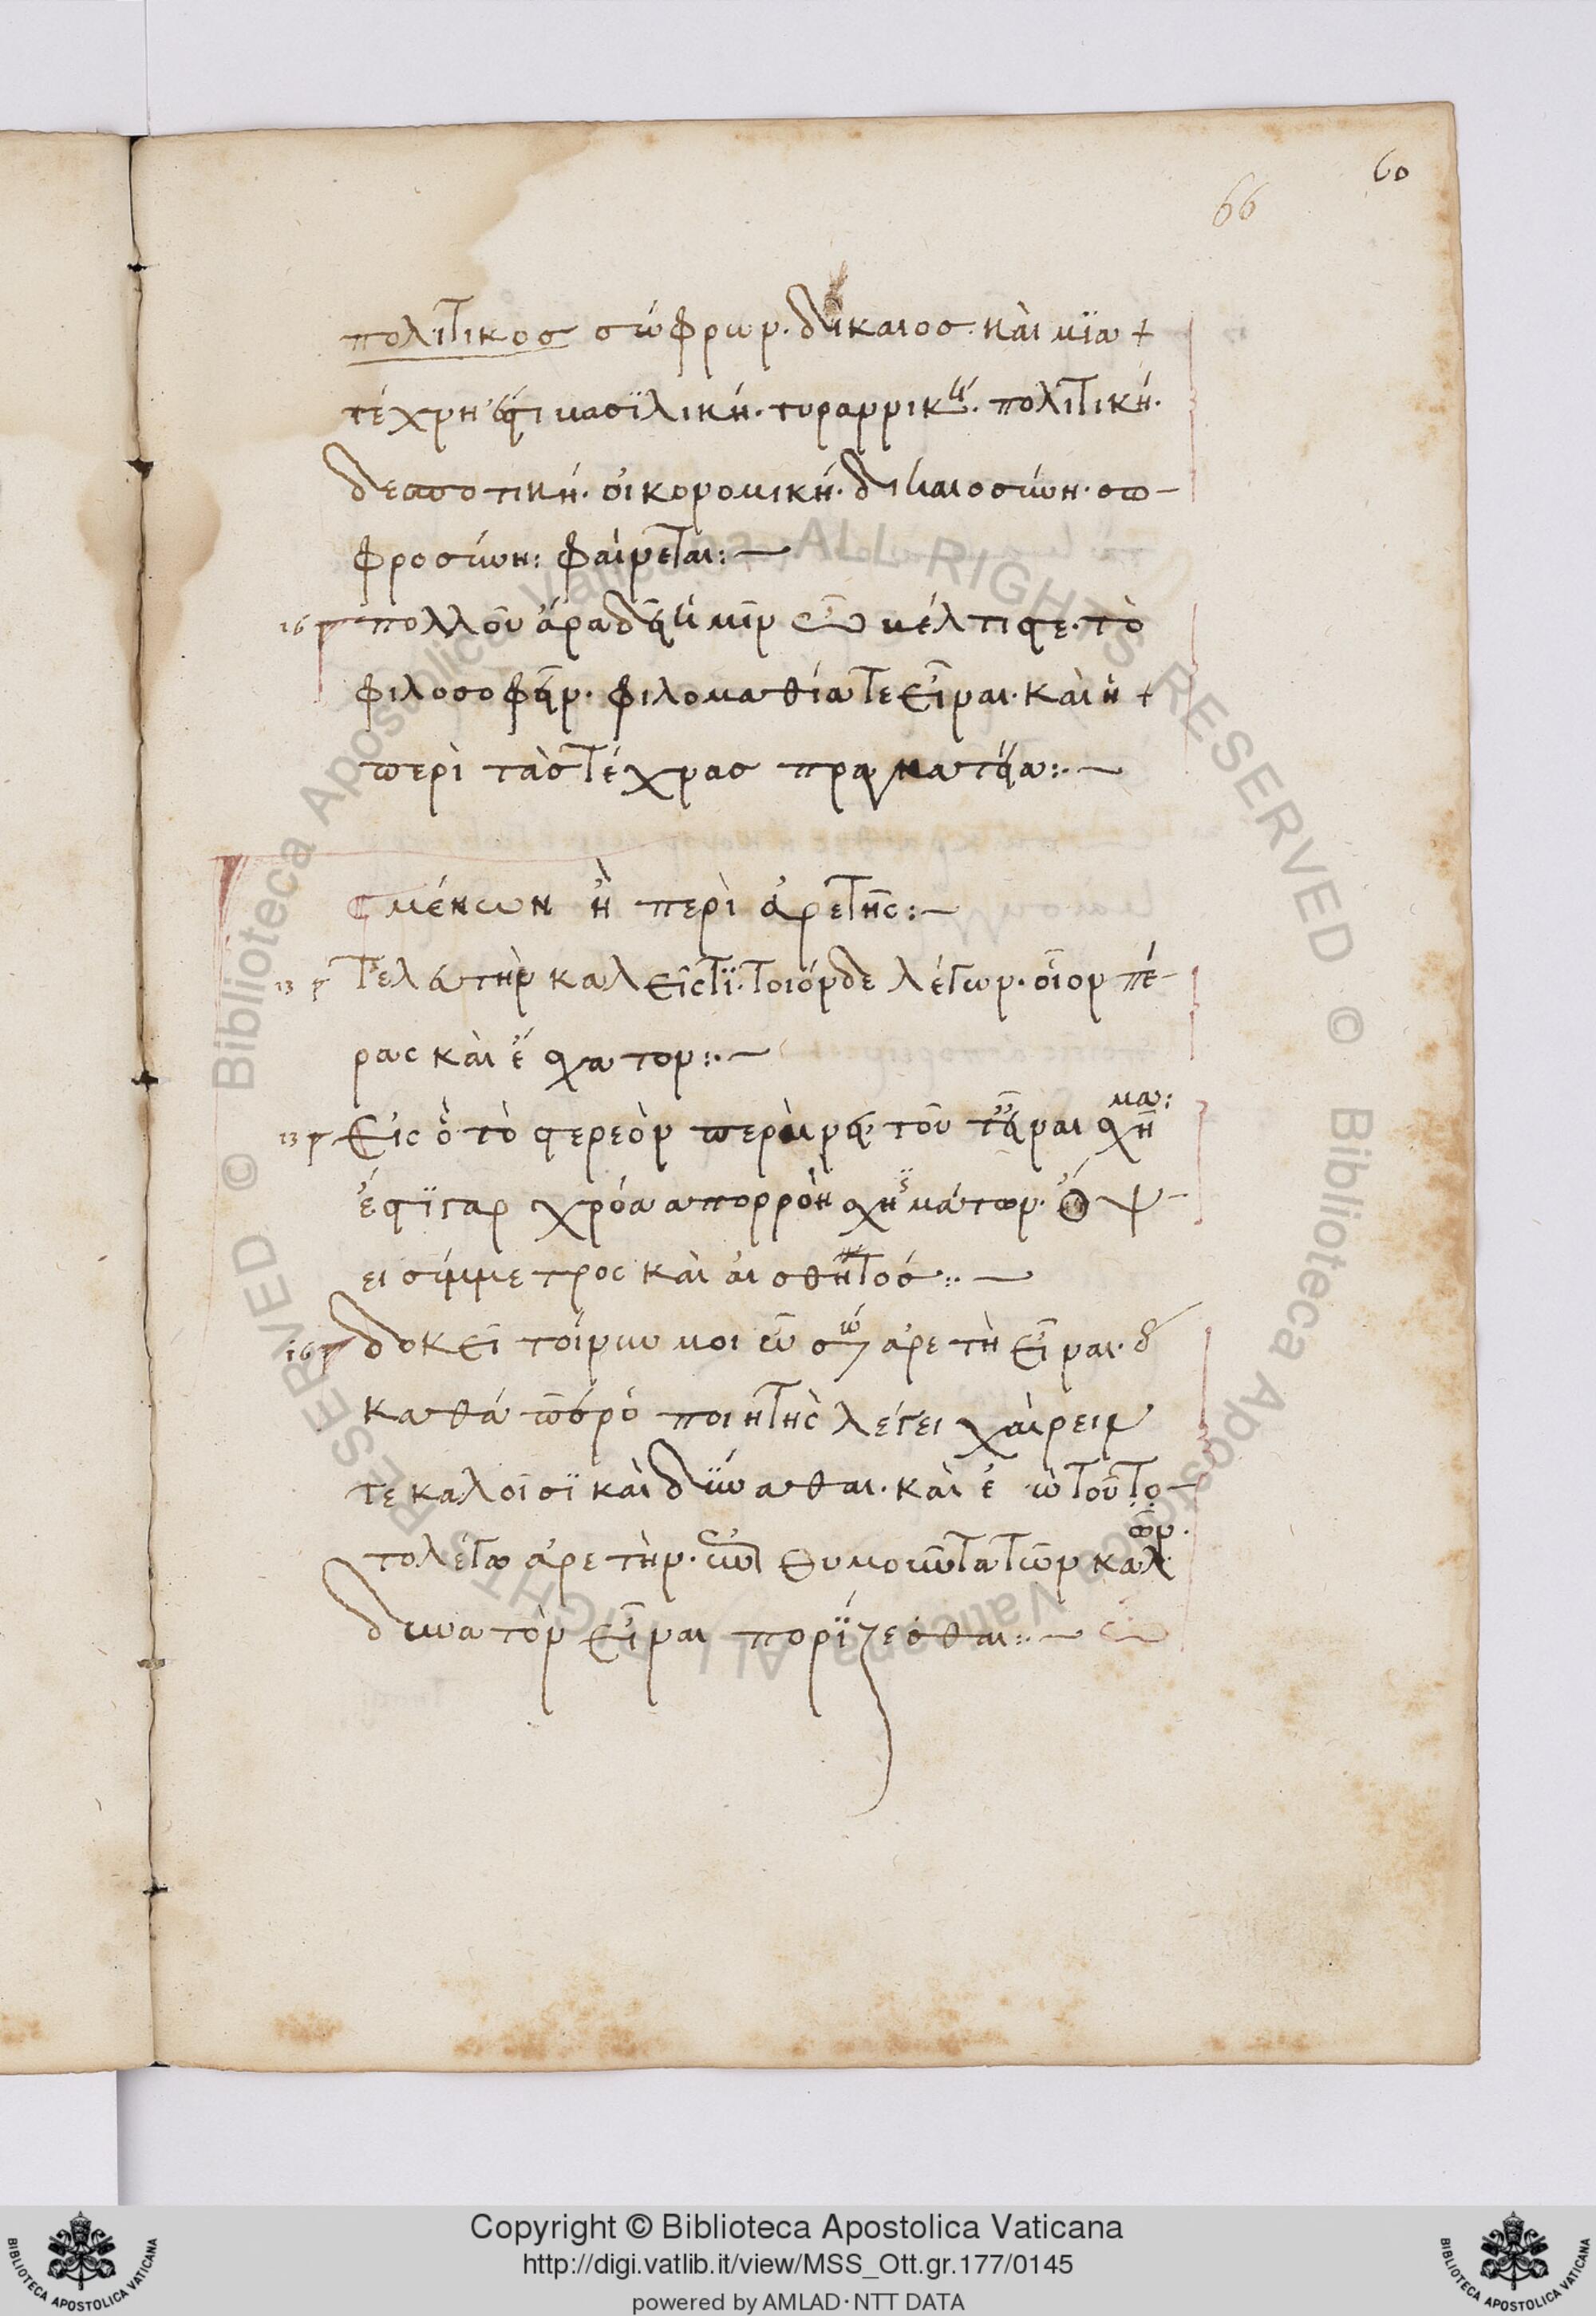 60
66
πολιτικοσ σώφρων. δίκαιοσ. καὶ μία +
τέχνη ἐστι βασϊλική. τυραννικὴ. πολιτική.
δεσποτική. οἰκονομική. δικαιοσύνη. σω-
φροσύνη: φαίνεται:—
16 πολλοῦ ἄρα δεῖ ἡμῖν ὦ βέλτιστε. τὸ
φιλοσοφεῖν. φιλομαθία τε εἶναι. καὶ ἡ +
περὶ τὰσ τέχνασ πραγματεία:.—
μένων ἢ περὶ ἀρετῆς:—
13 Τελευτὴν καλεῖς τϊ. τοιόνδε λέγων. οἷον πέ-
ρας καὶ ἔσχατον:.—
13 Εἰς ὃ τὸ στερεὸν περαίνει. τοῦτ εἶναι σχῆμα:
ἔστϊ γαρ χρόα απορροὴ σχημάτων. ὄψ-
ει σύμμετρος καὶ αισθητόσ:.—
16 δοκεῖ τοίνυν μοι ὦ σώ ἀρετὴ εἶναι.
καθάπερ ὁ ποιητὴς λέγει χαίρειν
τε καλοῖσϊ καὶ δύνασθαι. καὶ ἐγὼ τοῦτο-
το λέγω ἀρετὴν. ἐπιθυμοῦντα τῶν καλῶν.
δυνατὸν εἶναι πορΐζεσθαι:.—
Copyright © Biblioteca Apostolica Vaticana
http://digi.vatlib.it/view/MSS_Ott.gr.177/0145
powered by AMLAD·NTT DATA
BIBLIOTECA APOSTOLICA VATICANA
BIBLIOTECA APOSTOLICA VATICANA
© Biblioteca Apostolica Vaticana ALL RIGHTS RESERVED
© Biblioteca Apostolica Vaticana ALL RIGHTS RESERVED